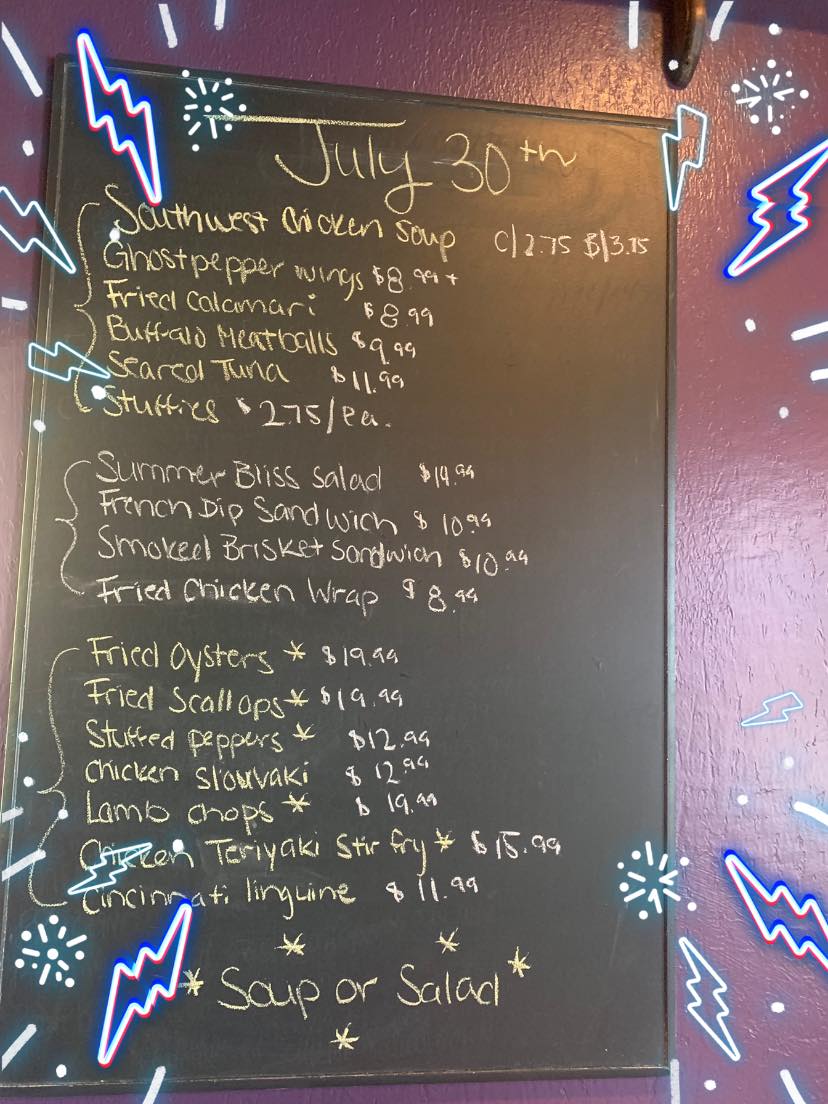 July 30th
Southwest Chicken Soup C/2.75 B/3.75
Ghostpepper wings $8.99+
Fried Calamari $8.99
Buffalo Meatballs $9.99
Seared Tuna $11.99
Stuffies $2.75/ea.
Summer Bliss Salad $14.99
French Dip Sandwich $10.99
Smoked Brisket Sandwich $10.99
Fried Chicken Wrap $8.99
Fried Oysters * $19.99
Fried Scallops * $19.99
Stuffed peppers * $12.99
Chicken Slouvaki $12.99
Lamb chops * $19.99
Chicken Teriyaki Stir fry * $15.99
Cincinnati linguine $11.99
* Soup or Salad *